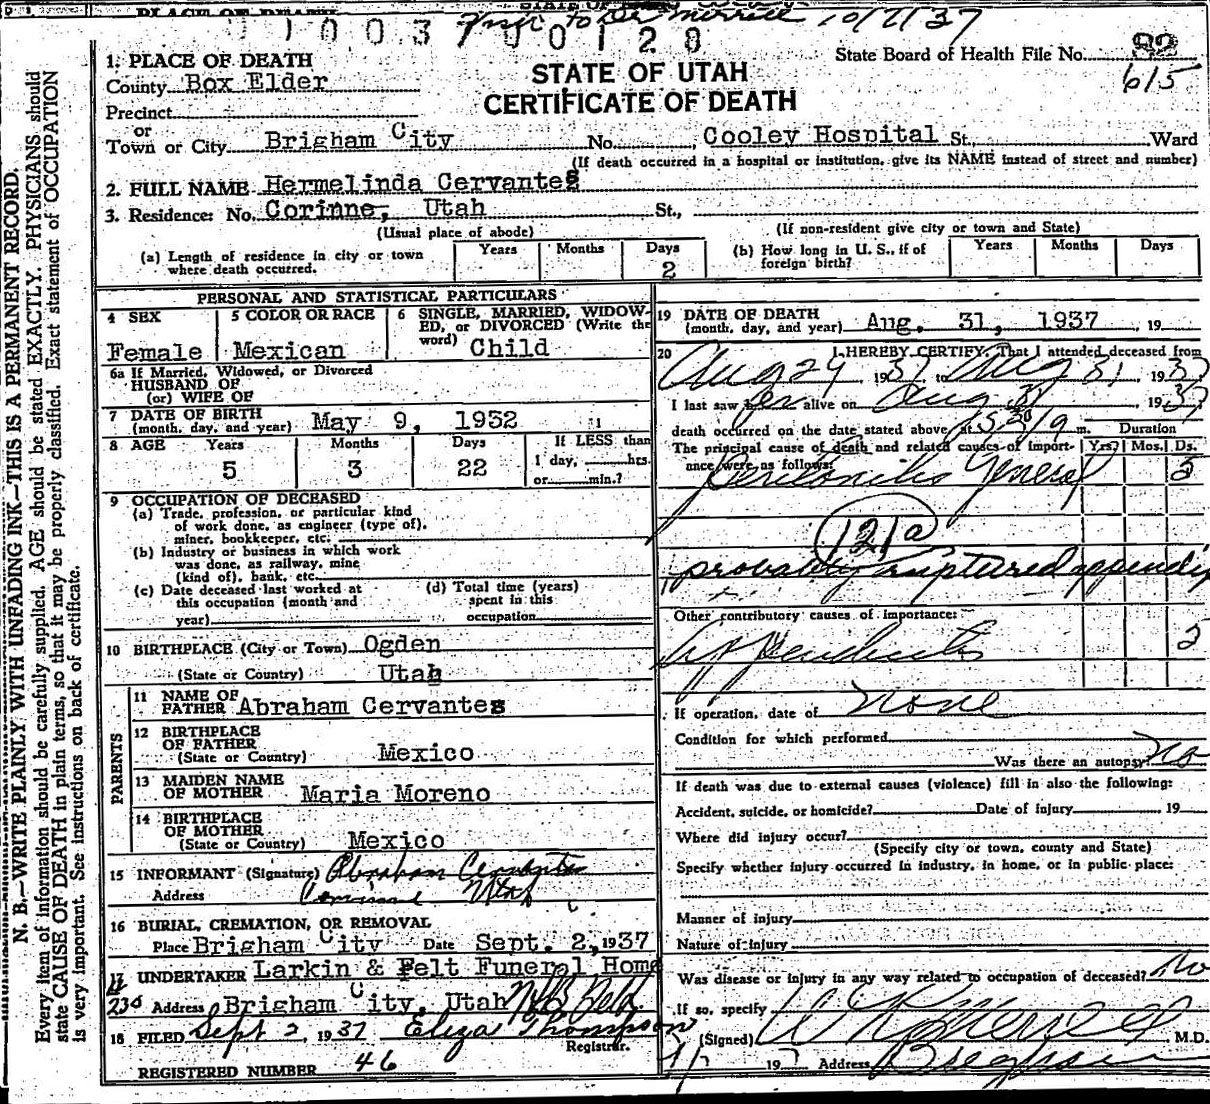 PLACE OF DEATH STATE OF
to Dr Merrill 10/7/37
1 0 0 3 7 0 0 1 2 8
State Board of Health File No. 92
615
1. PLACE OF DEATH
County Box Elder
STATE OF UTAH
CERTIFICATE OF DEATH
Precinct
or
Town or City Brigham City No. , Cooley Hospital St., Ward
(If death occurred in a hospital or institution, give its NAME instead of street and number)
2. FULL NAME Hermelinda Cervantes
3. Residence: No. Corinne, Utah St.,
(Usual place of abode) (If non-resident give city or town and State)
(a) Length of residence in city or town where death occurred. Years Months Days 2
(b) How long in U. S., if of foreign birth? Years Months Days
PERSONAL AND STATISTICAL PARTICULARS
4 SEX Female
5 COLOR OR RACE Mexican
6 SINGLE, MARRIED, WIDOWED, or DIVORCED (Write the word) Child
6a If Married, Widowed, or Divorced
HUSBAND OF
(or) WIFE OF
7 DATE OF BIRTH
(month, day, and year) May 9, 1932
8 AGE Years Months Days If LESS than
5 3 22 1 day, hrs.
or min.?
9 OCCUPATION OF DECEASED
(a) Trade, profession, or particular kind
of work done, as engineer (type of),
miner, bookkeeper, etc.
(b) Industry or business in which work
was done, as railway, mine
(kind of), bank, etc.
(c) Date deceased last worked at
this occupation (month and
year)
(d) Total time (years)
spent in this
occupation
10 BIRTHPLACE (City or Town) Ogden
(State or Country) Utah
PARENTS
11 NAME OF
FATHER Abraham Cervantes
12 BIRTHPLACE
OF FATHER
(State or Country) Mexico
13 MAIDEN NAME
OF MOTHER Maria Moreno
14 BIRTHPLACE
OF MOTHER
(State or Country) Mexico
15 INFORMANT (Signature) Abraham Cervantes
Address Corinne Utah
16 BURIAL, CREMATION, OR REMOVAL
Place Brigham City Date Sept. 2, 1937
17 UNDERTAKER Larkin & Felt Funeral Home
230 Address Brigham City, Utah
18 FILED Sept 2, 1937 Eliza Thompson
Registrar.
REGISTERED NUMBER 46
19 DATE OF DEATH
(month, day, and year) Aug. 31, 1937 , 19
20 I HEREBY CERTIFY, That I attended deceased from
Aug 29, 1937 to Aug 31, 1937
I last saw her alive on Aug 31, 1937
death occurred on the date stated above, at m. Duration
The principal cause of death and related causes of importance were as follows: Yrs. Mos. Ds.
Peritonitis General 3
121a
probably ruptured appendix
Other contributory causes of importance:
Appendicitis 3
If operation, date of None
Condition for which performed
Was there an autopsy? No
If death was due to external causes (violence) fill in also the following:
Accident, suicide, or homicide? Date of injury 19
Where did injury occur?
(Specify city or town, county and State)
Specify whether injury occurred in industry, in home, or in public place:
Manner of injury
Nature of injury
Was disease or injury in any way related to occupation of deceased? No
If so, specify
(Signed) Merrill M.D.
19 Address Brigham
N. B.—WRITE PLAINLY WITH UNFADING INK—THIS IS A PERMANENT RECORD.
Every item of information should be carefully supplied. AGE should be stated EXACTLY. PHYSICIANS should
state CAUSE OF DEATH in plain terms, so that it may be properly classified. Exact statement of OCCUPATION
is very important. See instructions on back of certificate.